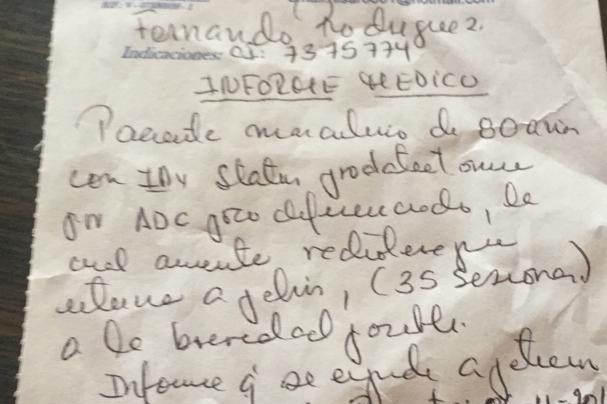 Fernando Rodriguez.
Indicaciones: CI: 7375774
INFORME MEDICO
Paciente masculino de 80 años
con IDx Status
por ADC poco diferenciado, la
cual amerite radioterapia
externa a pelvis, (35 sesiones)
a la brevedad posible.
Informe q se expide a peticion